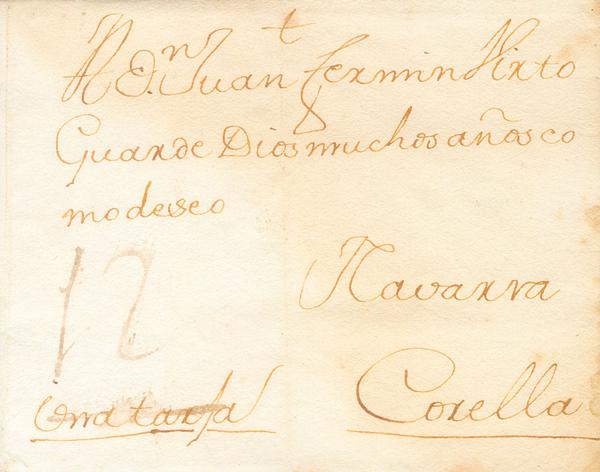 A Dn. Juan Fermin Virto
Guarde Dios muchos años co
mo deseo
Navarra
12
Corella